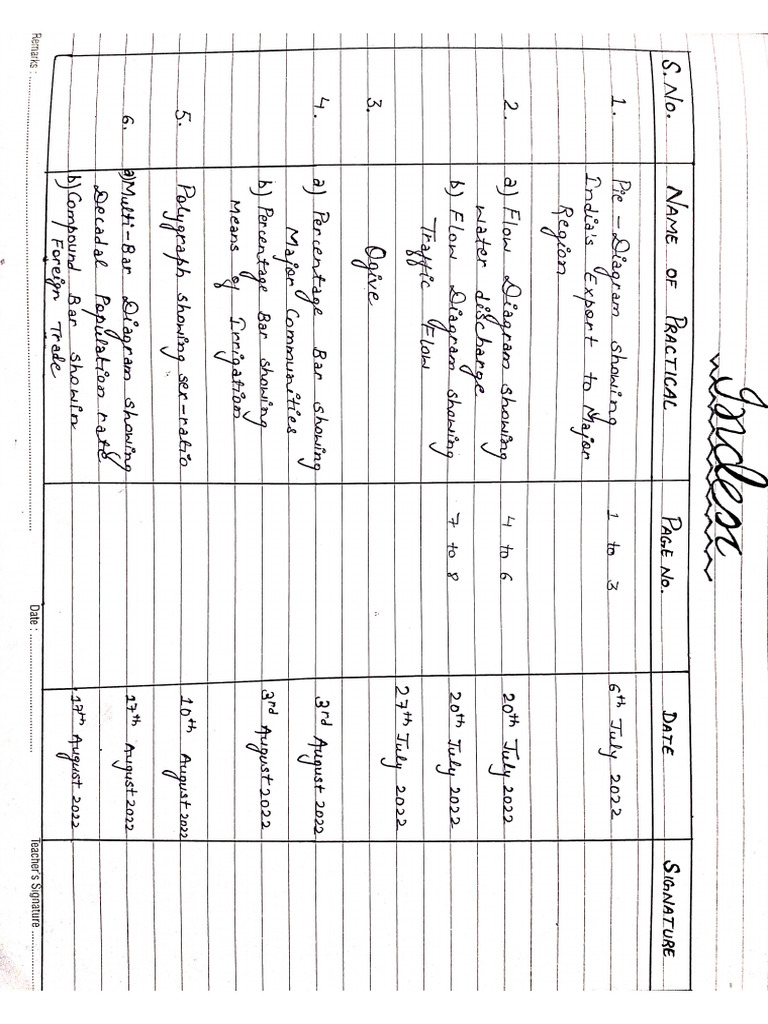 Index
S. No. NAME OF PRACTICAL PAGE NO. DATE SIGNATURE
1. Pie-Diagram showing 1 to 3 6th July 2022
India's Export to Major
Region
2. a) Flow Diagram showing 4 to 6 20th July 2022
water discharge
b) Flow Diagram showing 7 to 8 20th July 2022
Traffic Flow
27th July 2022
3. Ogive
4. a) Percentage Bar showing 3rd August 2022
Major Communities
b) Percentage Bar showing 3rd August 2022
Means of Irrigation
5. Polygraph showing sex-ratio 10th August 2022
6. a) Multi-Bar Diagram showing 17th August 2022
Decadal Population rate
b) Compound Bar showin 17th August 2022
Foreign Trade
Remarks : Date : Teacher's Signature